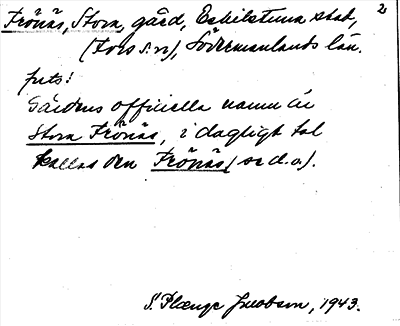 Frönäs, Stora, gård, Eskilstuna stad, 2
(Fors sn), Södermanlands län.
forts:
Gårdens officiella namn är
Stora Frönäs, i dagligt tal
kallas den Frönäs (se d.o.).
S. Plænge Jacobson, 1943.